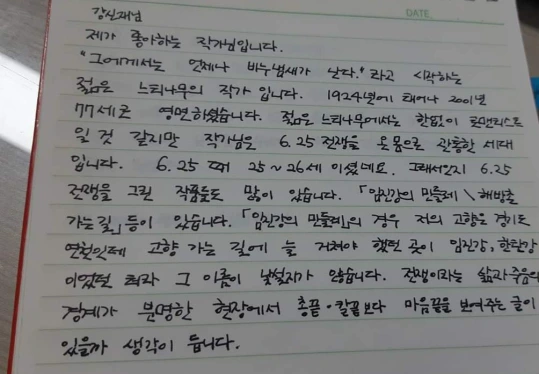 강신재님
DATE.
제가 좋아하는 작가님입니다.
"그에게서는 언제나 비누냄새가 난다."라고 시작하는
젊은 느티나무의 작가 입니다. 1924년에 태어나 2001년
77세로 영면하셨습니다. 젊은 느티나무에서는 한없이 로맨티스트
일 것 같지만 작가님은 6.25 전쟁을 온몸으로 관통한 세대
입니다. 6.25 때 25~26세 이셨네요. 그래서인지 6.25
전쟁을 그린 작품들도 많이 있습니다. 「임진강의 민들레 \ 해방촌
가는길」 등이 있습니다. 「임진강의 민들레」의 경우 저의 고향은 경기도
연천인데 고향 가는 길에 늘 거쳐야 했던 곳이 임진강, 한탄강
이었던 터라 그 이름이 낯설지가 않습니다. 전쟁이라는 삶과 죽음의
경계가 분명한 현장에서 총끝·칼끝보다 마음끝을 보여주는 글이
있을까 생각이 듭니다.